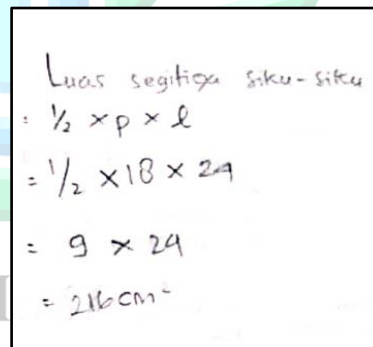 Luas segitiga siku-siku
= 1/2 × p × l
= 1/2 × 18 × 24
= 9 × 24
= 216 cm²